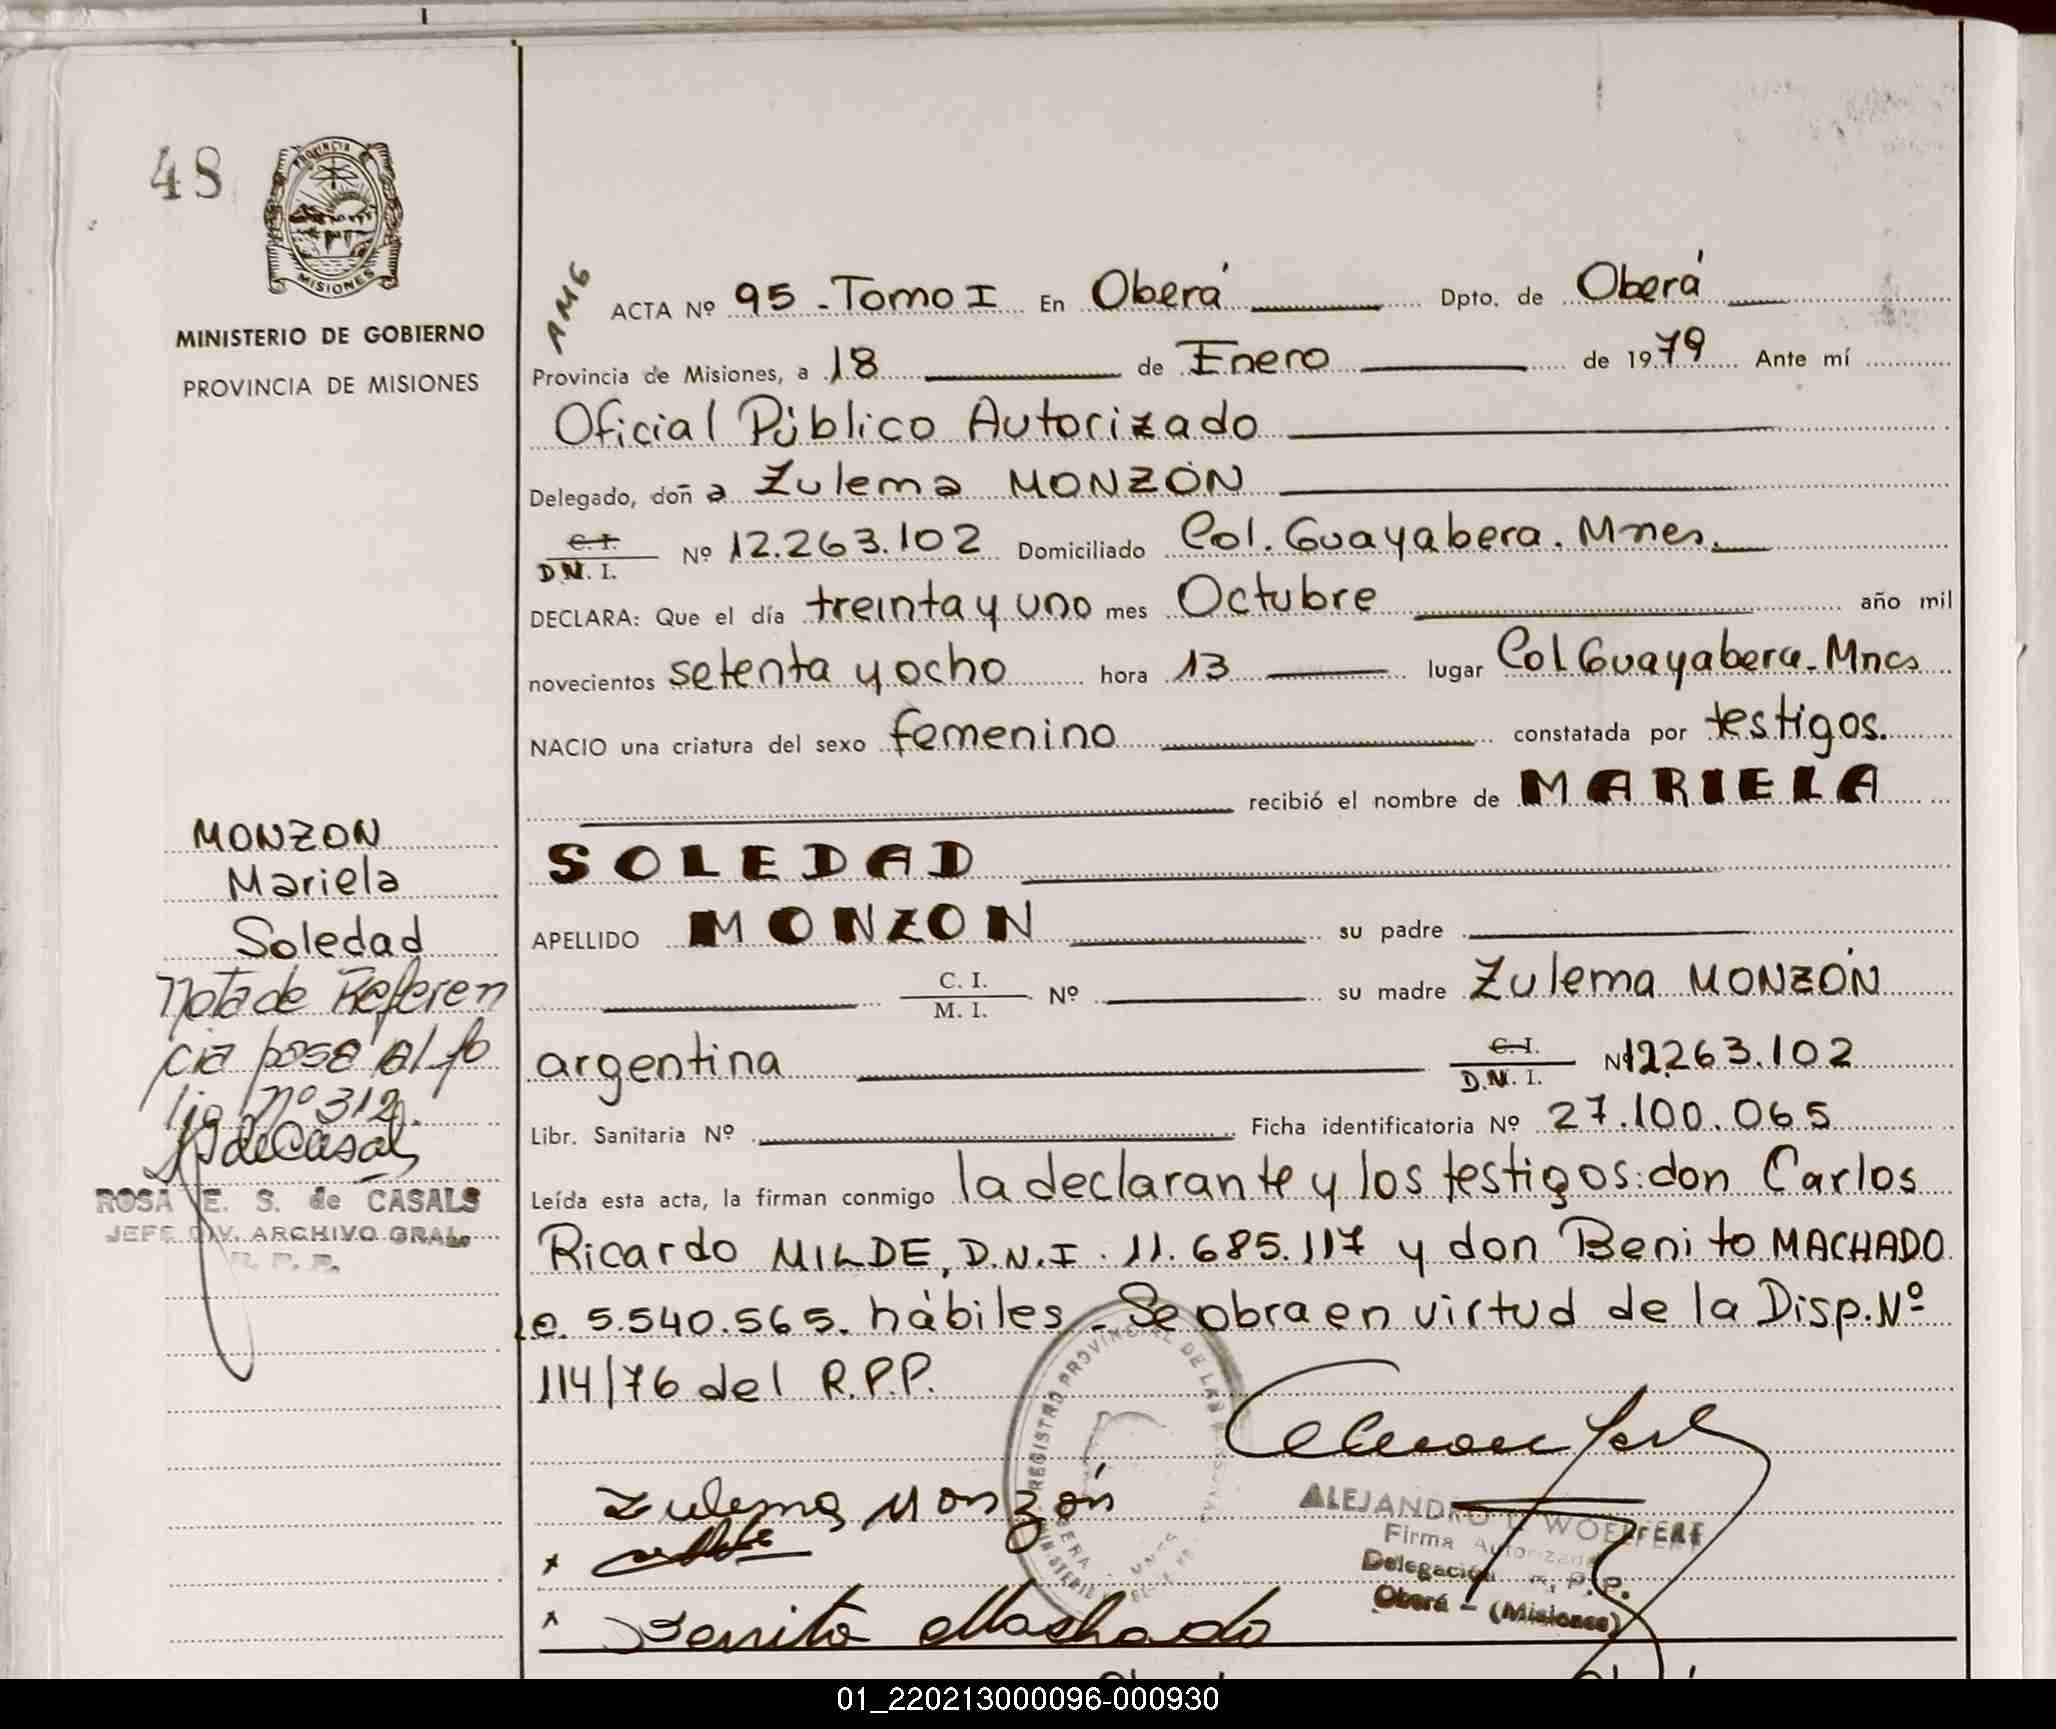 48
PROVINCIA
MISIONES
MINISTERIO DE GOBIERNO
PROVINCIA DE MISIONES
AMG
ACTA Nº 95 - Tomo I En Oberá Dpto. de Oberá
Provincia de Misiones, a 18 de Enero de 1979 Ante mí
Oficial Público Autorizado
Delegado, doña Zulema MONZÓN
C. I.
D.N. I. Nº 12.263.102 Domiciliado Col. Guayabera. Mnes.
DECLARA: Que el día treinta y uno mes Octubre año mil
novecientos setenta y ocho hora 13 lugar Col Guayabera - Mnes
NACIO una criatura del sexo femenino constatada por testigos.
recibió el nombre de MARIELA
SOLEDAD
APELLIDO MONZON su padre
C. I.
M. I. Nº su madre Zulema MONZÓN
argentina C. I.
D.N. I. Nº 12.263.102
Libr. Sanitaria Nº Ficha identificatoria Nº 27.100.065
Leída esta acta, la firman conmigo la declarante y los testigos: don Carlos
Ricardo MILDE, D.N.I. 11.685.117 y don Benito MACHADO
le. 5.540.565. hábiles - Se obra en virtud de la Disp. Nº
114/76 del R.P.P.
MONZON
Mariela
Soledad
Nota de Referen
cia pasa al fo
lio nº 312.
de Casals
ROSA E. S. de CASALS
JEFE DIV. ARCHIVO GRAL.
R. P. P.
REGISTRO PROVINCIAL DE LAS
Zulema Monzón
ALEJANDRO WOELFERT
Firma Autorizada
Delegación R. P. P.
Oberá - (Misiones)
x
x Benito Machado
01_220213000096-000930